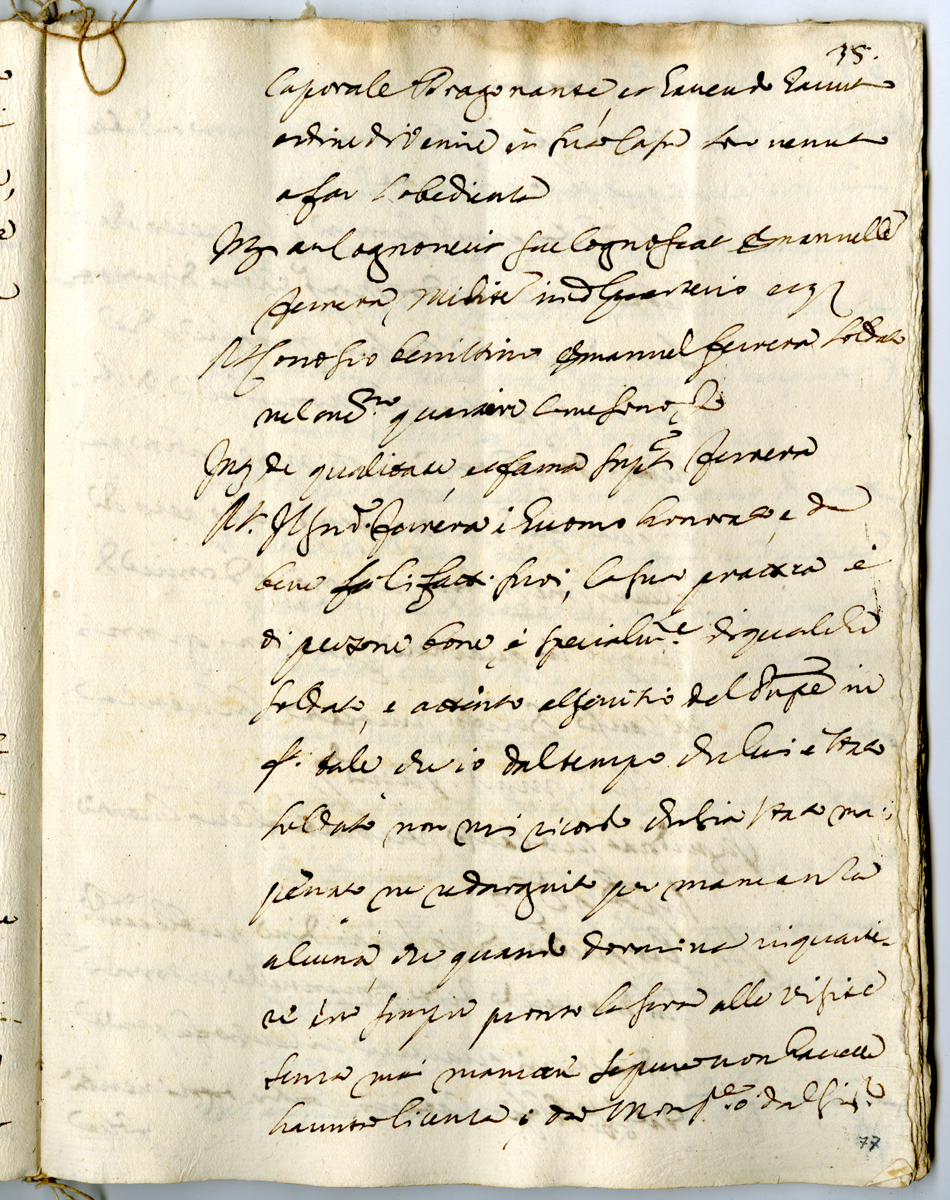 35.
Caporale Dragonante, et havendo havuto
ordine di venire in sua Casa son venuto
a far l'obedienza
Int. an cognoverit sive cognoscat Emanuelle
ferrera, milite in d. quarterio etc.
Rt. Conosco benissimo Emanuel ferrera soldato
nel quartiere come sono Io
Int. de qualitate, et fama supt. ferrera
Rt. Il sud. ferrera è huomo honorato, e da
bene fa li fatti suoi, la sua prattica è
di persone bone, e specialm.e di qualche
soldato, e attento al servitio del in
tale che io dal tempo che lui è stato
soldato non mi ricordo che sia stato mai
penato ne redarguito per mancanza
alcuna, che quando dormiva in quartie-
re era sempre pronto la sera alle visite
senza mai mancare se pure non havesse
havuto licenza, o dal
77